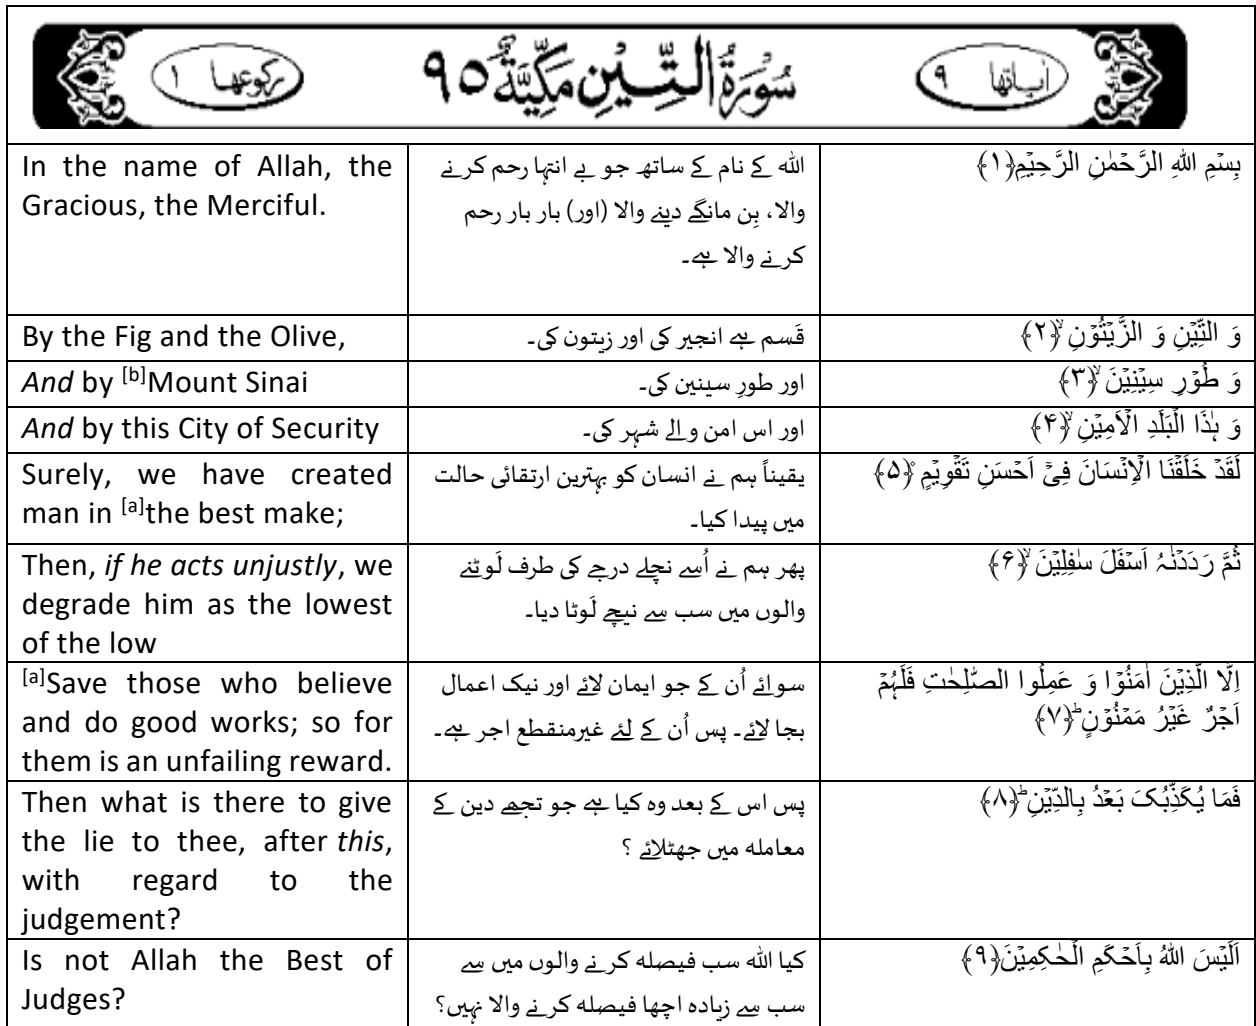 اٰیاتها ۹ سُوْرَةُ التِّیْنِ مَكِّیَّةٌ ۹۵ رکوعها ۱
In the name of Allah, the
Gracious, the Merciful.
اللہ کے نام کے ساتھ جو بے انتہا رحم کرنے
والا، بِن مانگے دینے والا (اور) بار بار رحم
کرنے والا ہے۔
بِسۡمِ اللّٰہِ الرَّحۡمٰنِ الرَّحِیۡمِ﴿۱﴾
By the Fig and the Olive,
قَسم ہے انجیر کی اور زیتون کی۔
وَ التِّیۡنِ وَ الزَّیۡتُوۡنِ ۙ﴿۲﴾
And by [b]Mount Sinai
اور طورِ سینین کی۔
وَ طُوۡرِ سِیۡنِیۡنَ ۙ﴿۳﴾
And by this City of Security
اور اس امن والے شہر کی۔
وَ ہٰذَا الۡبَلَدِ الۡاَمِیۡنِ ۙ﴿۴﴾
Surely, we have created
man in [a]the best make;
یقیناً ہم نے انسان کو بہترین ارتقائی حالت
میں پیدا کیا۔
لَقَدۡ خَلَقۡنَا الۡاِنۡسَانَ فِیۡۤ اَحۡسَنِ تَقۡوِیۡمٍ ۫﴿۵﴾
Then, if he acts unjustly, we
degrade him as the lowest
of the low
پھر ہم نے اُسے نچلے درجے کی طرف لَوٹنے
والوں میں سب سے نیچے لَوٹا دیا۔
ثُمَّ رَدَدۡنٰہُ اَسۡفَلَ سٰفِلِیۡنَ ۙ﴿۶﴾
[a]Save those who believe
and do good works; so for
them is an unfailing reward.
سوائے اُن کے جو ایمان لائے اور نیک اعمال
بجا لائے۔ پس اُن کے لئے غیرمنقطع اجر ہے۔
اِلَّا الَّذِیۡنَ اٰمَنُوۡا وَ عَمِلُوا الصّٰلِحٰتِ فَلَہُمۡ
اَجۡرٌ غَیۡرُ مَمۡنُوۡنٍ ؕ﴿۷﴾
Then what is there to give
the lie to thee, after this,
with regard to the
judgement?
پس اس کے بعد وہ کیا ہے جو تجھے دین کے
معاملہ میں جھٹلائے ؟
فَمَا یُکَذِّبُکَ بَعۡدُ بِالدِّیۡنِ ؕ﴿۸﴾
Is not Allah the Best of
Judges?
کیا اللہ سب فیصلہ کرنے والوں میں سے
سب سے زیادہ اچھا فیصلہ کرنے والا نہیں؟
اَلَیۡسَ اللّٰہُ بِاَحۡکَمِ الۡحٰکِمِیۡنَ﴿۹﴾